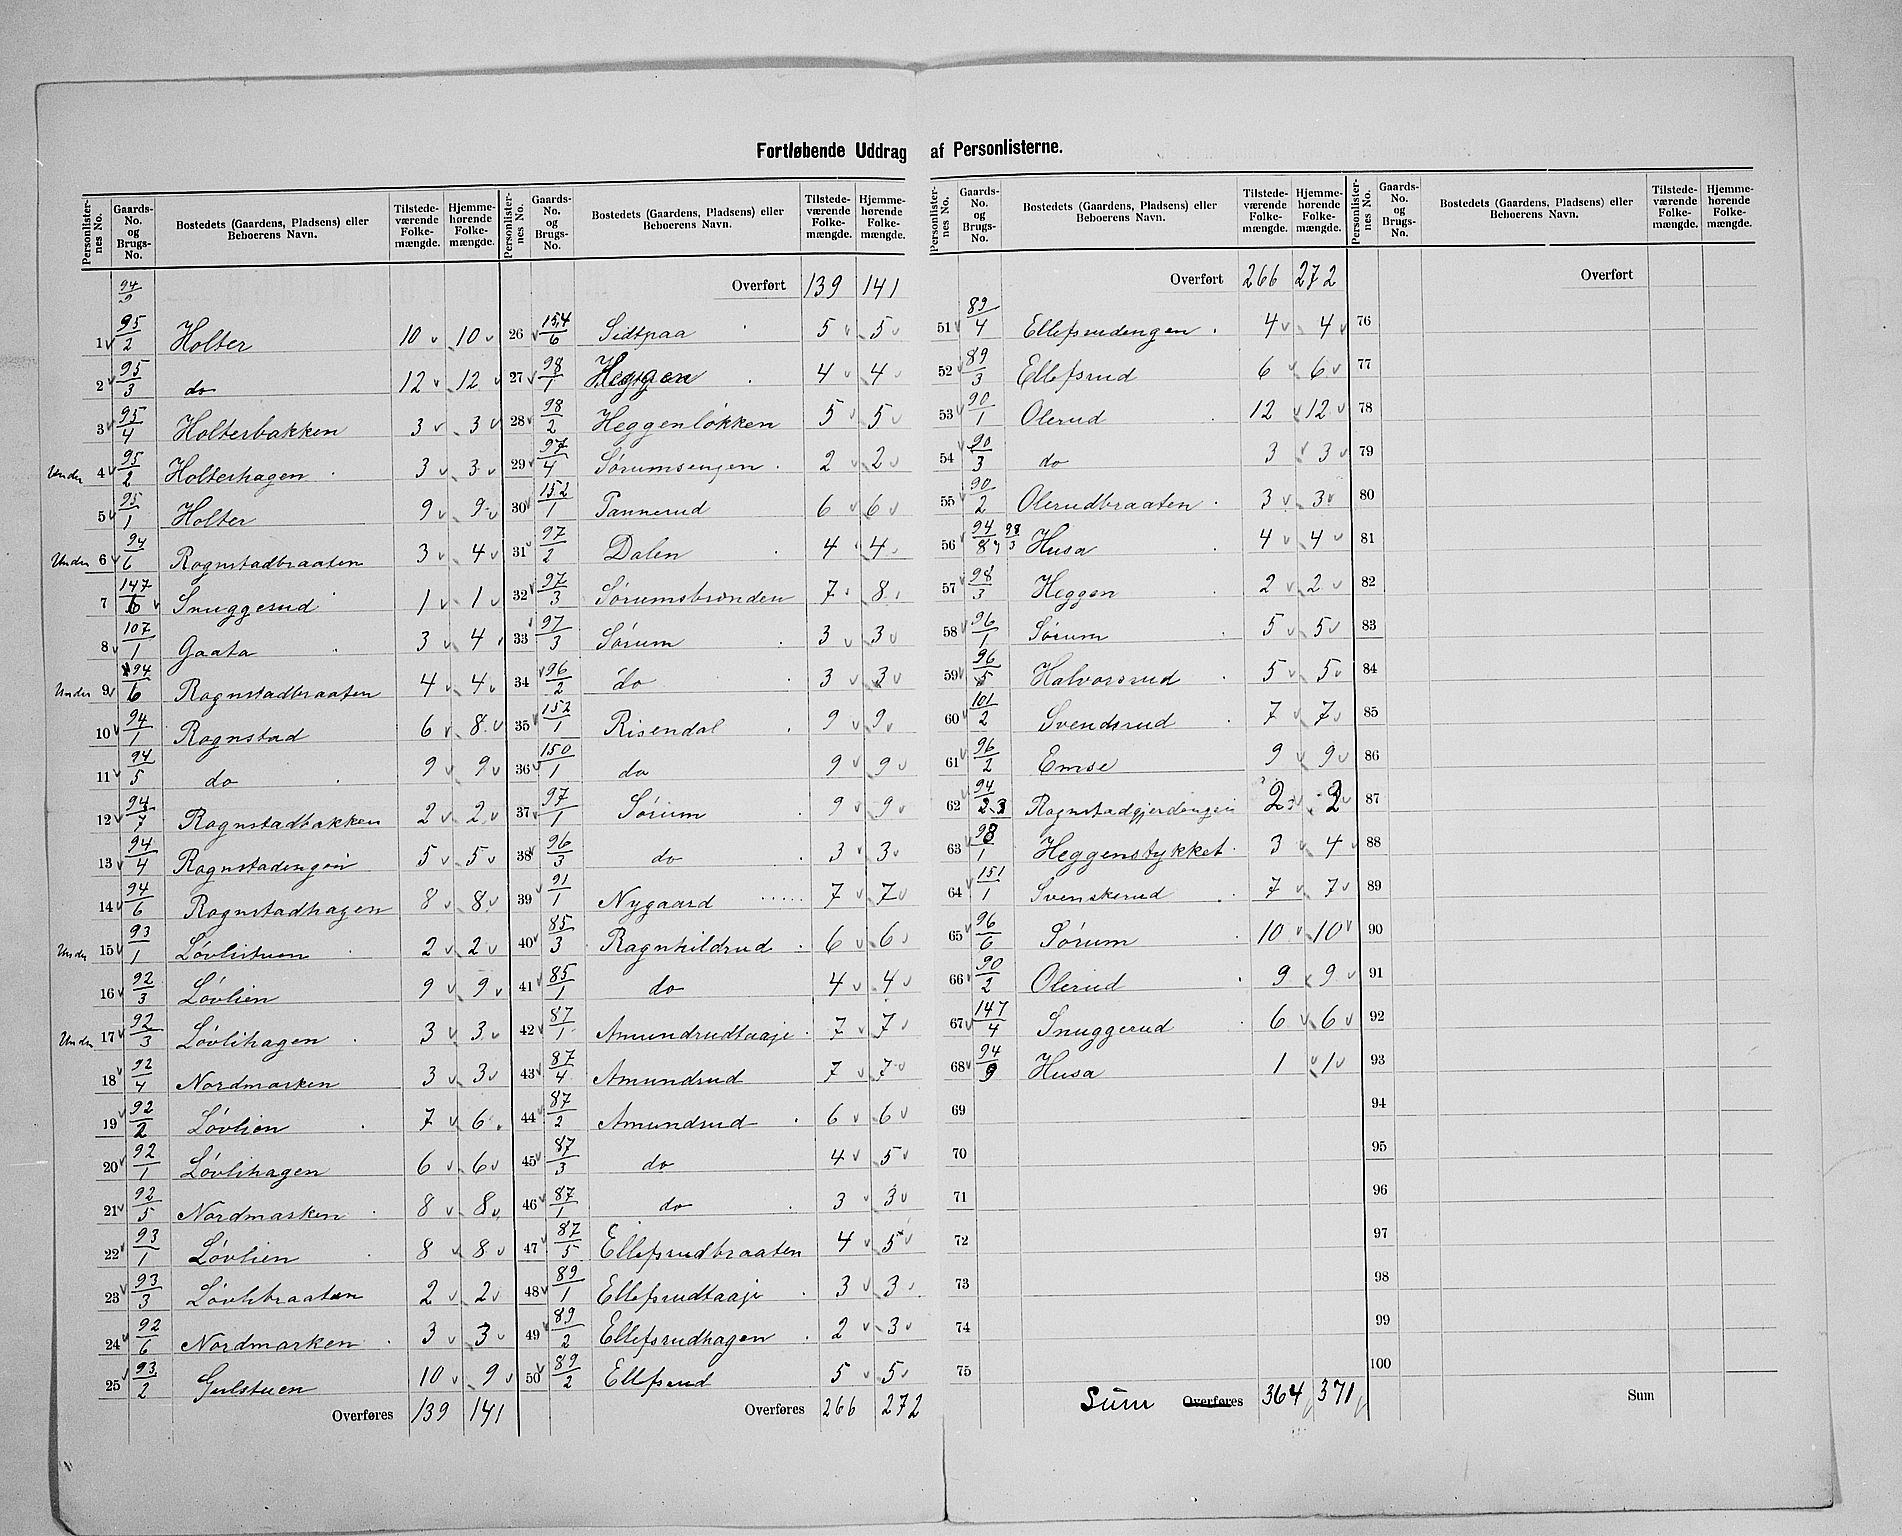 Fortløbende Uddrag af Personlisterne.
Personlisternes No. | Gaards-No. og Brugs-No. | Bostedets (Gaardens, Pladsens) eller Beboerens Navn. | Tilstedeværende Folkemængde. | Hjemmehørende Folkemængde.
94/9
1 95/2 Holter 10 10
2 95/3 do 12 12
3 95/4 Holterbakken 3 3
Under 4 95/2 Holterhagen 3 3
5 95/1 Holter 9 9
Under 6 94/6 Rognstadbraaten 3 4
7 147/6 Snuggerud 1 1
8 107/1 Gaata 3 4
Under 9 94/6 Rognstadbraaten 4 4
10 94/1 Rognstad 6 8
11 94/5 do 9 9
12 94/7 Rognstadbakken 2 2
13 94/4 Rognstadengen 5 5
14 94/6 Rognstadhagen 8 8
Under 15 93/1 Løvlistuen 2 2
16 92/3 Løvlien 9 9
Under 17 92/3 Løvlihagen 3 3
18 92/4 Nordmarken 3 3
19 92/2 Løvlien 7 6
20 92/1 Løvlihagen 6 6
21 92/5 Nordmarken 8 8
22 93/1 Løvlien 8 8
23 93/3 Løvlibraaten 2 2
24 92/6 Nordmarken 3 3
25 93/2 Gulstuen 10 9
Overføres 139 141
Personlisternes No. | Gaards-No. og Brugs-No. | Bostedets (Gaardens, Pladsens) eller Beboerens Navn. | Tilstedeværende Folkemængde. | Hjemmehørende Folkemængde.
Overført 139 141
26 154/6 Sidtpaa 5 5
27 98/1 Heggen 4 4
28 98/2 Heggenløkken 5 5
29 97/4 Sørumsengen 2 2
30 152/1 Tannerud 6 6
31 97/2 Dalen 4 4
32 97/3 Sørumsbrønden 7 8
33 97/3 Sørum 3 3
34 96/2 do 3 3
35 152/1 Risendal 9 9
36 150/1 do 9 9
37 97/1 Sørum 9 9
38 96/3 do 3 3
39 91/1 Nygaard 7 7
40 85/3 Ragnhildrud 6 6
41 85/1 do 4 4
42 87/1 Amundrudtaaje 7 7
43 87/4 Amundrud 7 7
44 87/2 Amundrud 6 6
45 87/3 do 4 5
46 87/1 do 3 3
47 87/5 Ellefsrudbraaten 4 5
48 89/1 Ellefsrudtaaje 3 3
49 89/2 Ellefsrudhagen 2 3
50 89/2 Ellefsrud 5 5
Overføres 266 272
Personlisternes No. | Gaards-No. og Brugs-No. | Bostedets (Gaardens, Pladsens) eller Beboerens Navn. | Tilstedeværende Folkemængde. | Hjemmehørende Folkemængde.
Overført 266 272
51 89/4 Ellefsrudengen 4 4
52 89/3 Ellefsrud 6 6
53 90/1 Olerud 12 12
54 90/3 do 3 3
55 90/2 Olerudbraaten 3 3
56 94/8 98/3 Husa 4 4
57 98/3 Heggen 2 2
58 96/1 Sørum 5 5
59 96/5 Halvorsrud 5 5
60 101/2 Svendsrud 7 7
61 96/2 Emse 9 9
62 94/2.3 Rognstadgjerdengen 2 2
63 98/1 Heggenstykket 3 4
64 151/1 Svenskerud 7 7
65 96/6 Sørum 10 10
66 90/2 Olerud 9 9
67 147/4 Snuggerud 6 6
68 94/9 Husa 1 1
69
70
71
72
73
74
75
Sum Overføres 364 371
Personlisternes No. | Gaards-No. og Brugs-No. | Bostedets (Gaardens, Pladsens) eller Beboerens Navn. | Tilstedeværende Folkemængde. | Hjemmehørende Folkemængde.
Overført
76
77
78
79
80
81
82
83
84
85
86
87
88
89
90
91
92
93
94
95
96
97
98
99
100
Sum